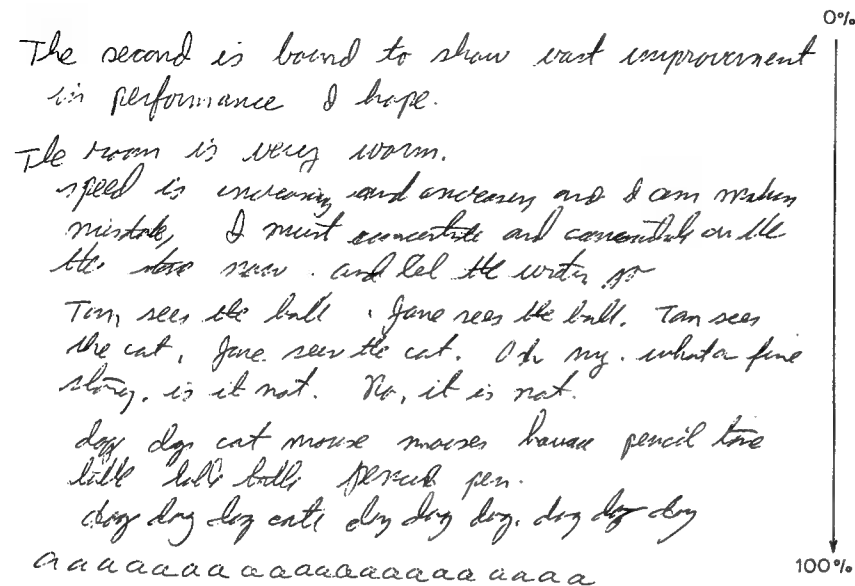 0%
The second is bound to show vast improvement
in performance I hope.
The room is very warm.
speed is increasing and increasing and I am making
mistake, I must concentrate and concentrate on the
the now. and let the writin go
Tom sees the ball. Jane sees the ball. Tom sees
the cat, Jane sees the cat. Oh my. what a fine
story, is it not. No, it is not.
dog dogs cat mouse mouses house pencil tree
balls pencil pen.
dog dog dog cats dog dog dog. dog dog dog
a a a a a a a a a a a a a a a a a a a a
100%